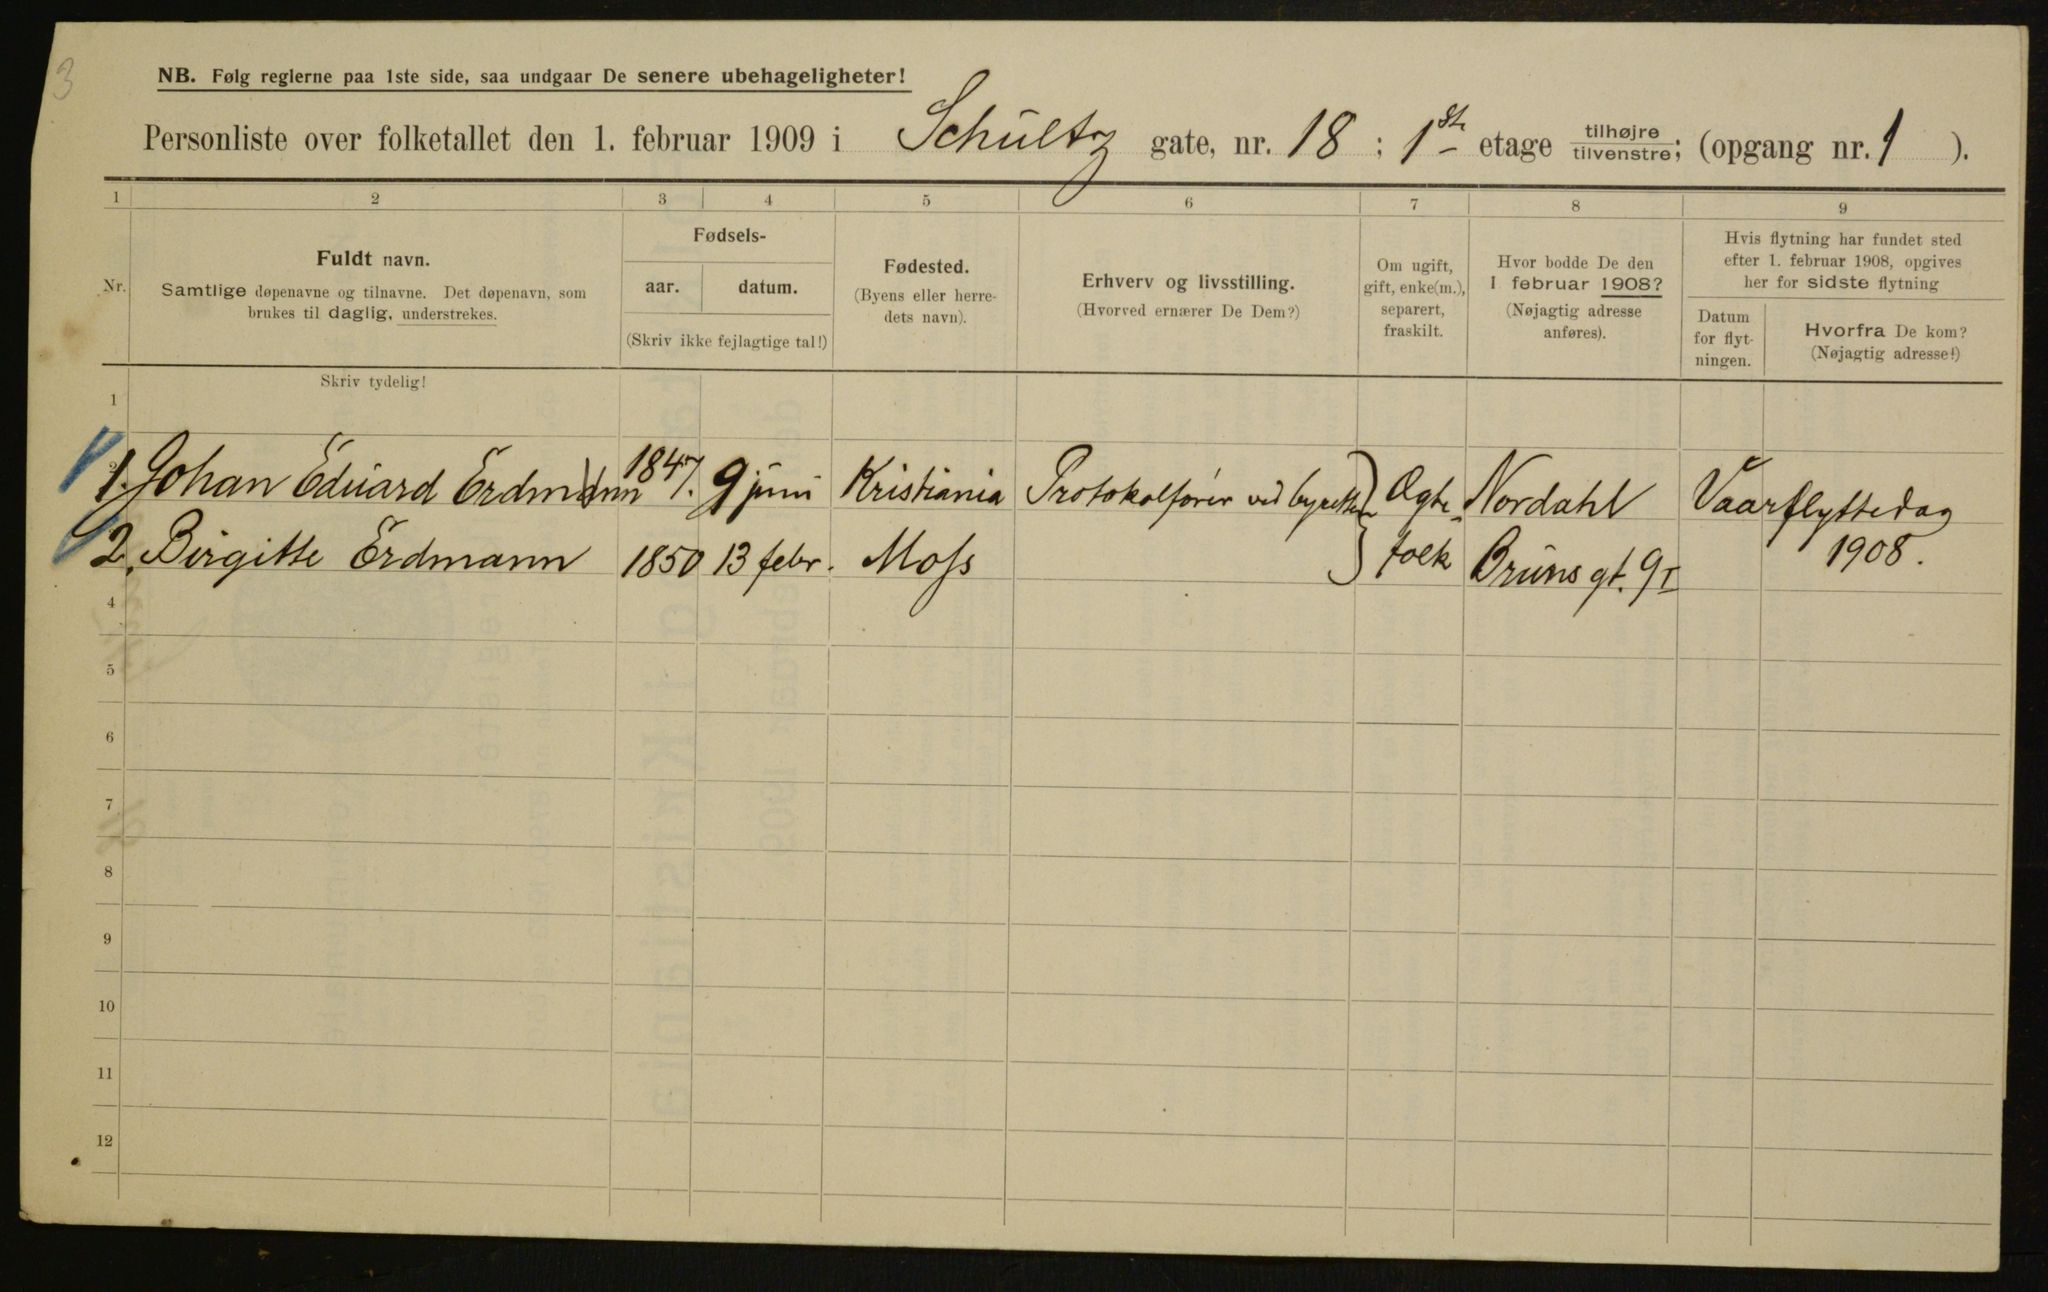 3
NB. Følg reglerne paa 1ste side, saa undgaar De senere ubehageligheter!
Personliste over folketallet den 1. februar 1909 i Schultz gate, nr. 18 ; 1ste etage tilhøjre / tilvenstre; (opgang nr. 1 ).
1 2 3 4 5 6 7 8 9
Nr.
Fuldt navn.
Samtlige døpenavne og tilnavne. Det døpenavn, som
brukes til daglig, understrekes.
Skriv tydelig!
Fødsels-
aar. datum.
(Skriv ikke fejlagtige tal!)
Fødested.
(Byens eller herre-
dets navn).
Erhverv og livsstilling.
(Hvorved ernærer De Dem?)
Om ugift,
gift, enke(m.),
separert,
fraskilt.
Hvor bodde De den
1 februar 1908?
(Nøjagtig adresse
anføres).
Hvis flytning har fundet sted
efter 1. februar 1908, opgives
her for sidste flytning
Datum
for flyt-
ningen.
Hvorfra De kom?
(Nøjagtig adresse!)
1
1. Johan Eduard Erdmann 1847. 9 juni Kristiania Protokolfører ved byretten Ægte- Nordahl Vaarflyttedag
2. Birgitte Erdmann 1850 13 febr. Moss folk Bruns gt. 9 I 1908.
4
5
6
7
8
9
10
11
12